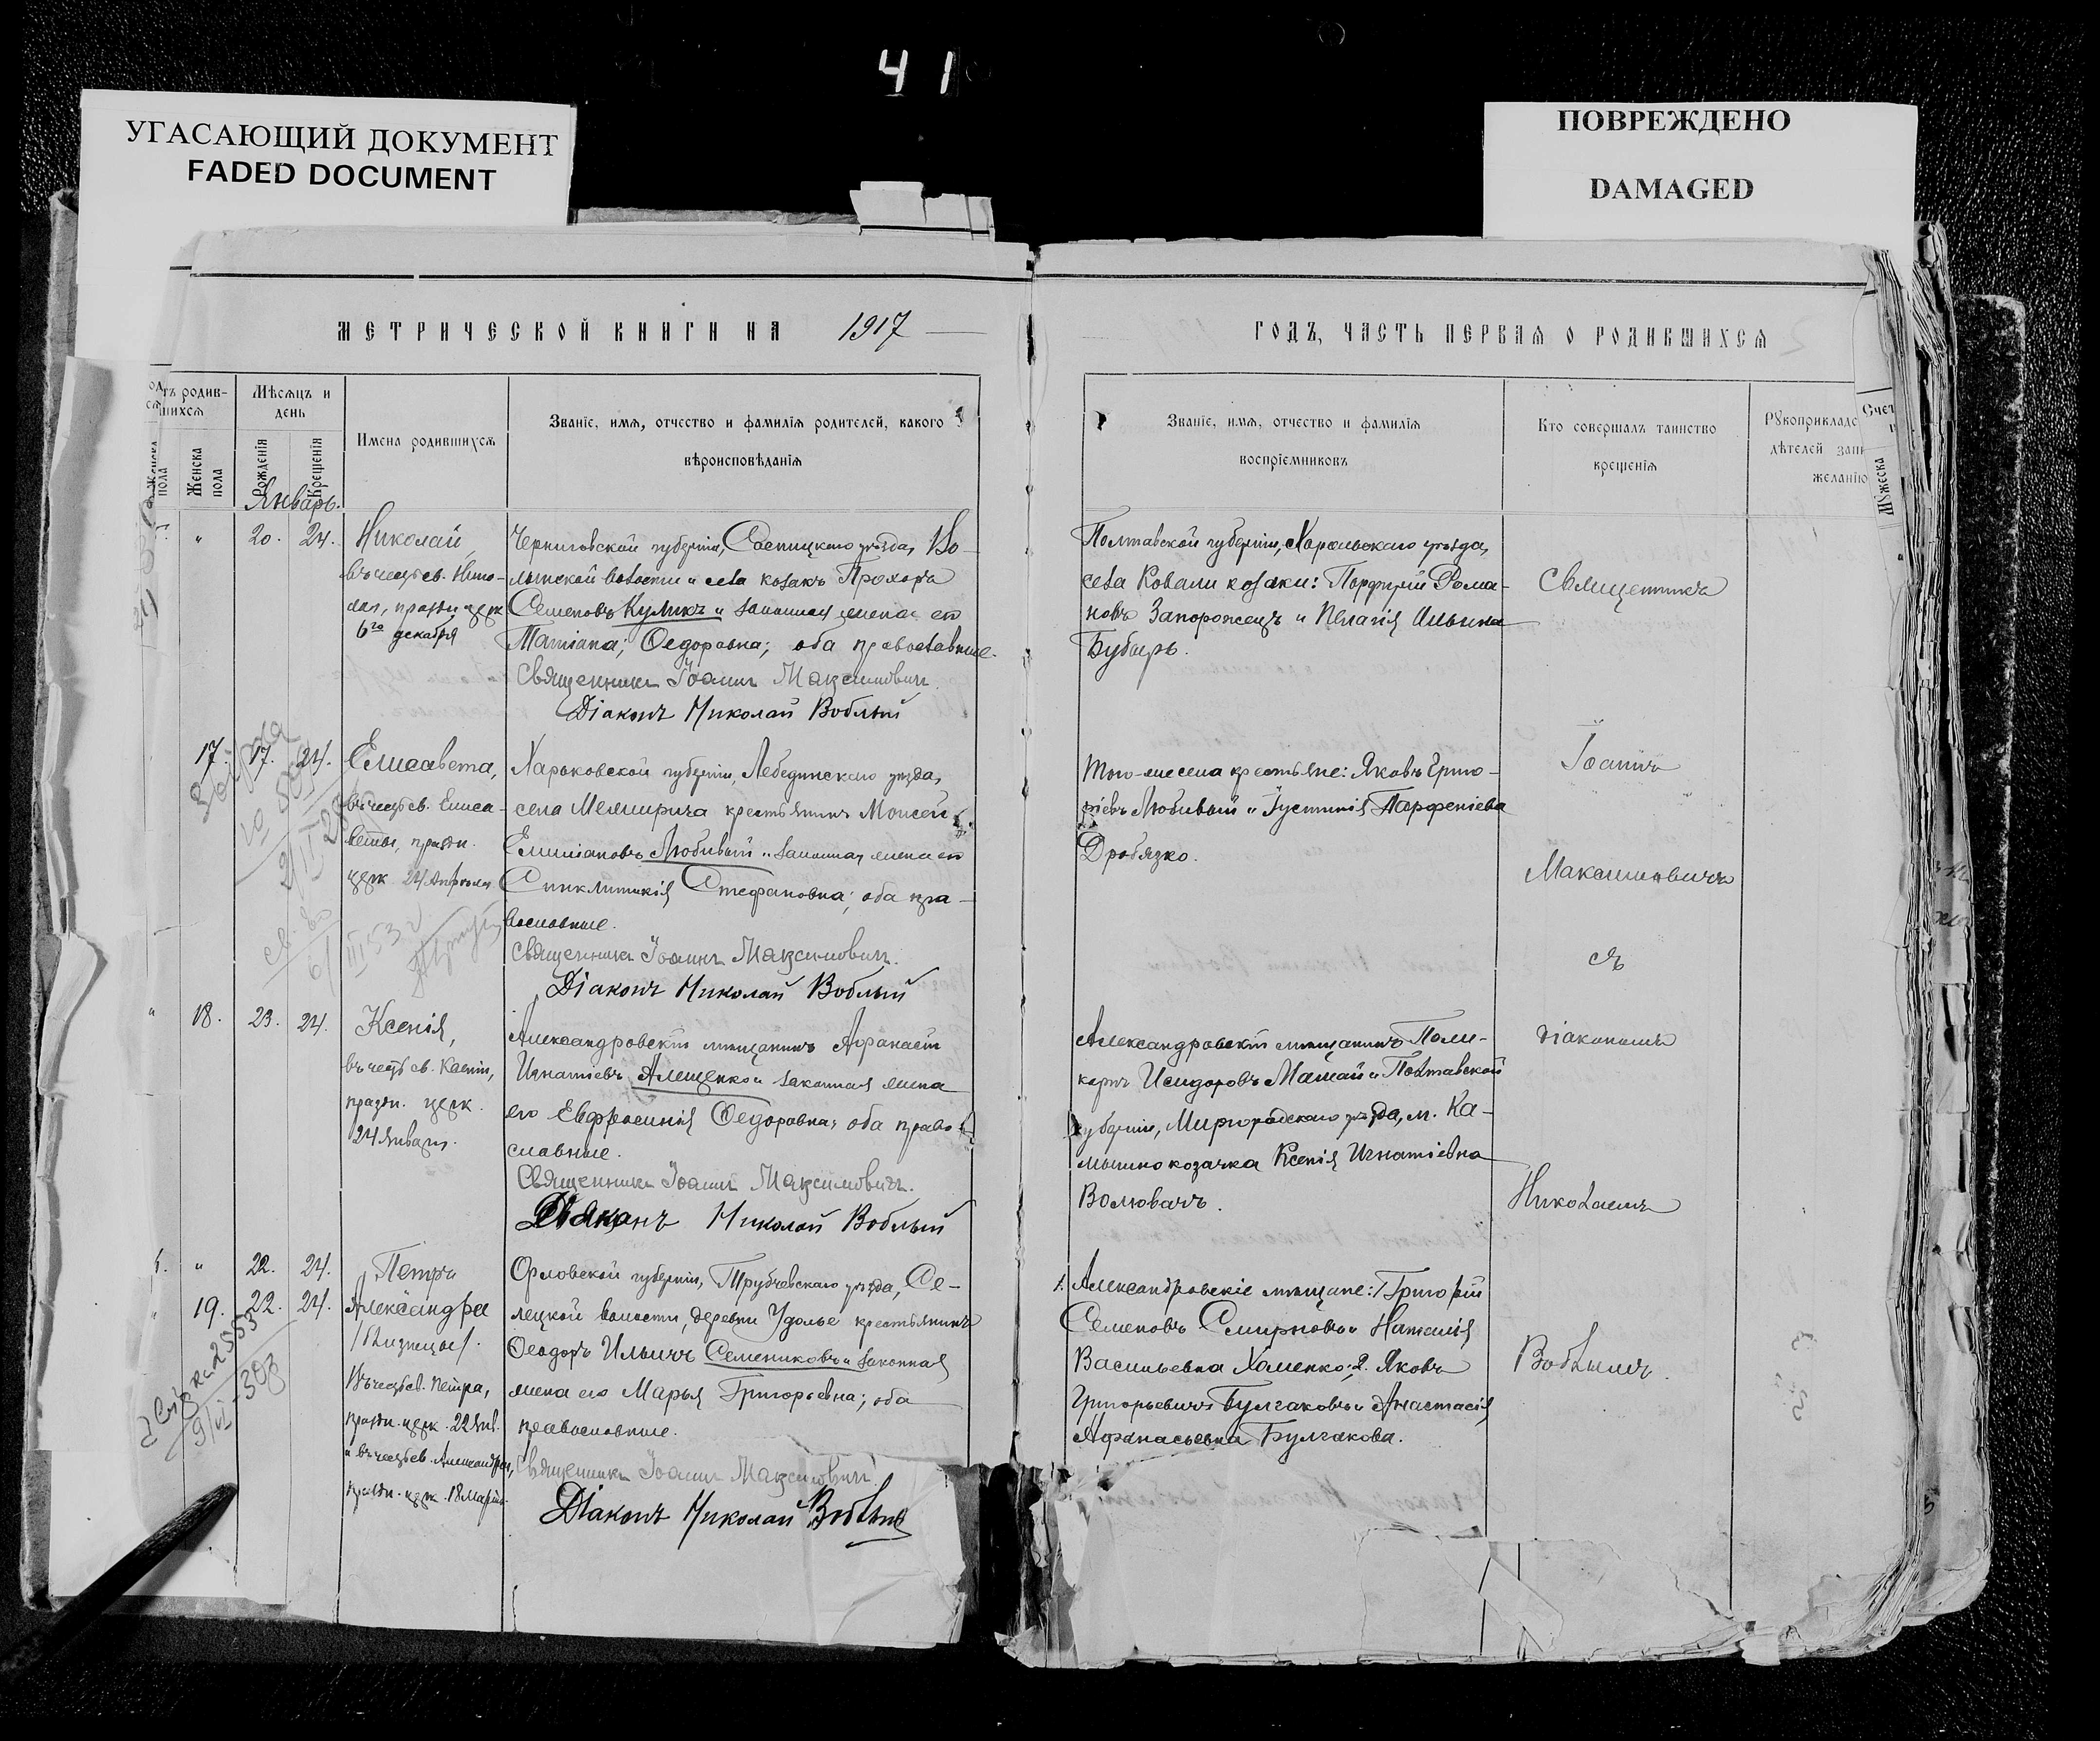 41
УГАСАЮЩИЙ ДОКУМЕНТ
FADED DOCUMENT
ПОВРЕЖДЕНО
DAMAGED
МЕТРИЧЕСКОЙ КНИГИ НА 1917
ГОДЪ, ЧАСТЬ ПЕРВАЯ О РОДИВШИХСЯ
тъ родив-
шихся
Женска пола
Женска пола
Мѣсяцъ и день
Рожденія
Крещенія
Имена родившихся
Званіе, имя, отчество и фамилія родителей, какого
вѣроисповѣданія
Званіе, имя, отчество и фамилія
воспріемниковъ
Кто совершалъ таинство
крещенія
Рукоприкладс
дѣтелей запи
желанію
Счет
Мужеска
Январь.
" 20. 24.
Николай,
въ честь св. Нико-
лая, праздн. церк.
6го декабря
Черниговской губерніи, уѣзда,
волости и села козакъ Прохоръ
Семеновъ Куликъ и законная жена его
Татіана Ѳедоровна; оба православные.
Священникъ Іоаннъ Максимовичъ.
Діаконъ Николай Воблый
Полтавской губерніи, Хорольскаго уѣзда,
села Ковали козаки: Порфирій Рома-
новъ Запорожецъ и Пелагія Ильина
Бубырь.
Священникъ
17. 17. 24.
Елисавета,
въ честь св. Елиса-
веты, праздн.
церк. 24 Апрѣля
Харьковской губерніи, Лебединскаго уѣзда,
села Межирича крестьянинъ Моисей
Емиліановъ Любивый и законная жена его
Синклитикія Стефановна; оба пра-
вославные.
Священникъ Іоаннъ Максимовичъ.
Діаконъ Николай Воблый
Того-же села крестьяне: Яковъ Григо-
ріевъ Любивый и Іустинія Парфеніева
Дробязко.
Іоаннъ
Максимовичъ
съ
" 18. 23. 24.
Ксенія,
въ честь св. Ксеніи,
праздн. церк.
24 Января.
Александровскій мѣщанинъ Афанасій
Игнатіевъ Алещенко и законная жена
его Евфросинія Ѳедоровна; оба право-
славные.
Священникъ Іоаннъ Максимовичъ.
Діаконъ Николай Воблый
Александровскій мѣщанинъ Поли-
карпъ Исидоровъ Мамай и Полтавской
губерніи, Миргородскаго уѣзда, м. Ка-
мышно козачка Ксенія Игнатіевна
Волювачъ.
діакономъ
Николаемъ
" 22. 24.
19. 22. 24.
Петръ
Александра
/близнецы/.
Въ честь св. Петра,
праздн. церк. 22 Янв.
и въ честь св. Александры,
праздн. церк. 18 Марта.
Орловской губерніи, Трубчевскаго уѣзда, Се-
лецкой волости, деревни Удолье крестьянинъ
Ѳеодоръ Ильичъ Семениковъ и законная
жена его Марья Григорьевна; оба
православные.
Священникъ Іоаннъ Максимовичъ
Діаконъ Николай Воблый
1. Александровскіе мѣщане: Григорій
Семеновъ Смирновъ и Наталія
Васильевна Хоменко; 2. Яковъ
Григорьевичъ Булгаковъ и Анастасія
Афанасьевна Булгакова.
Воблымъ.